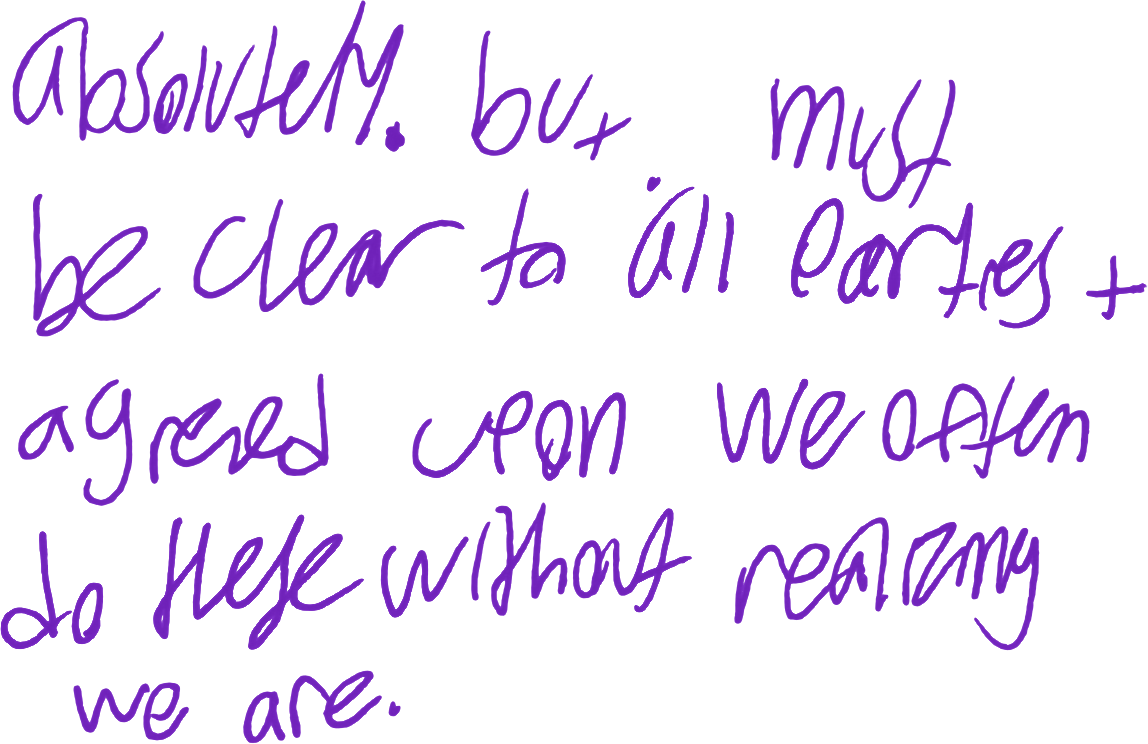 absolutely. but must
be clear to all parties +
agreed upon we often
do these without realizing
we are.